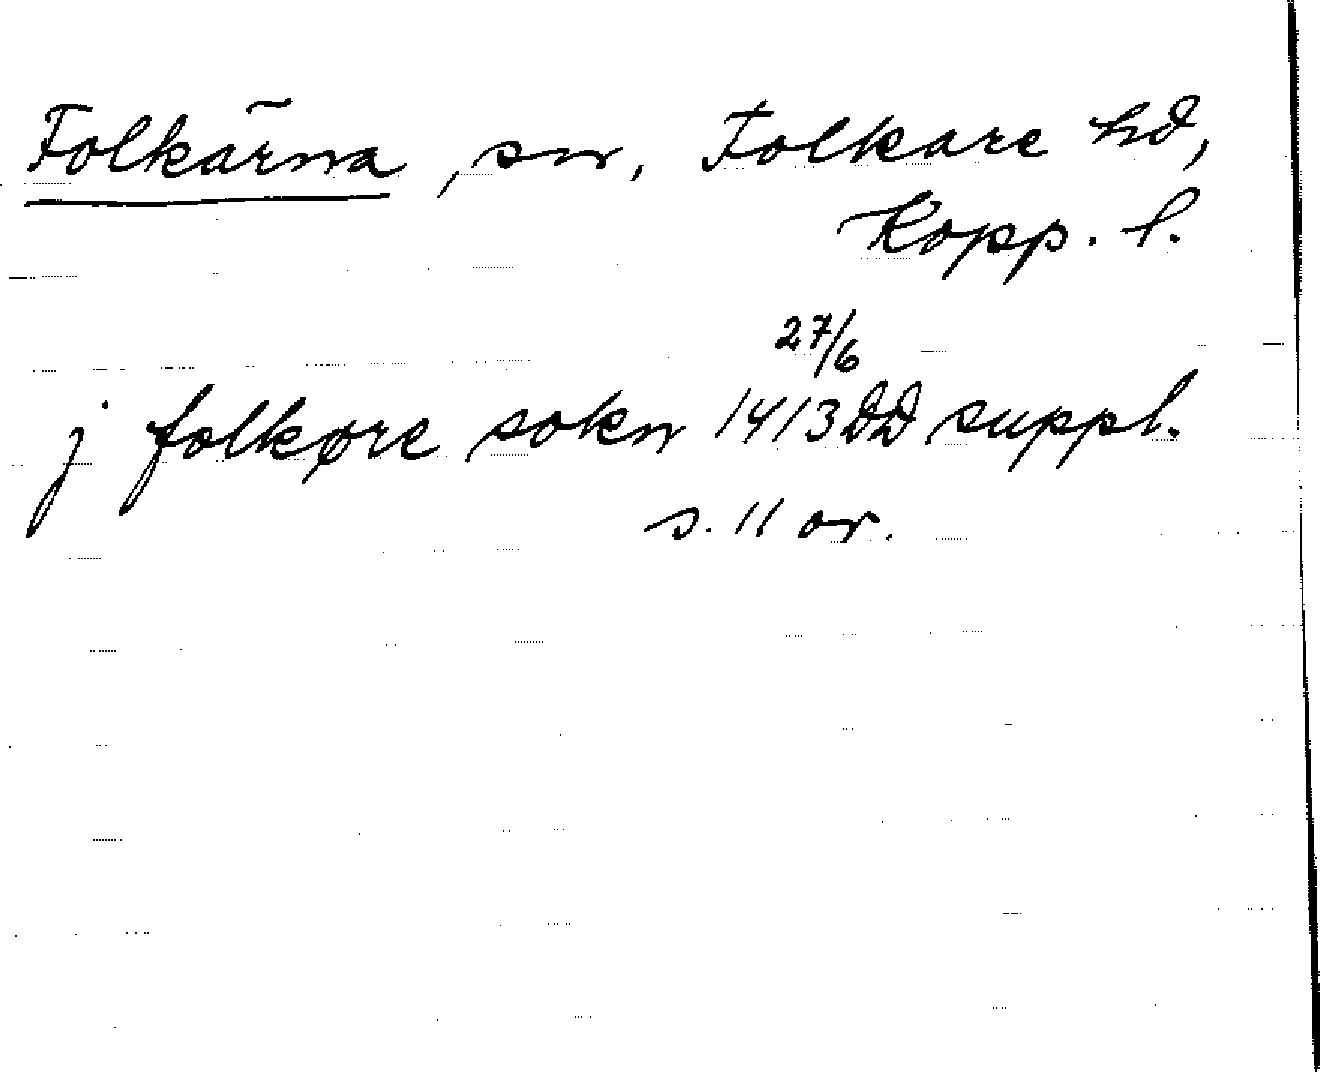 Folkärna, sn, Folkare hd,
Kopp. l.
j folkøre sokn 27/6 1413 DD suppl.
s. 11 or.